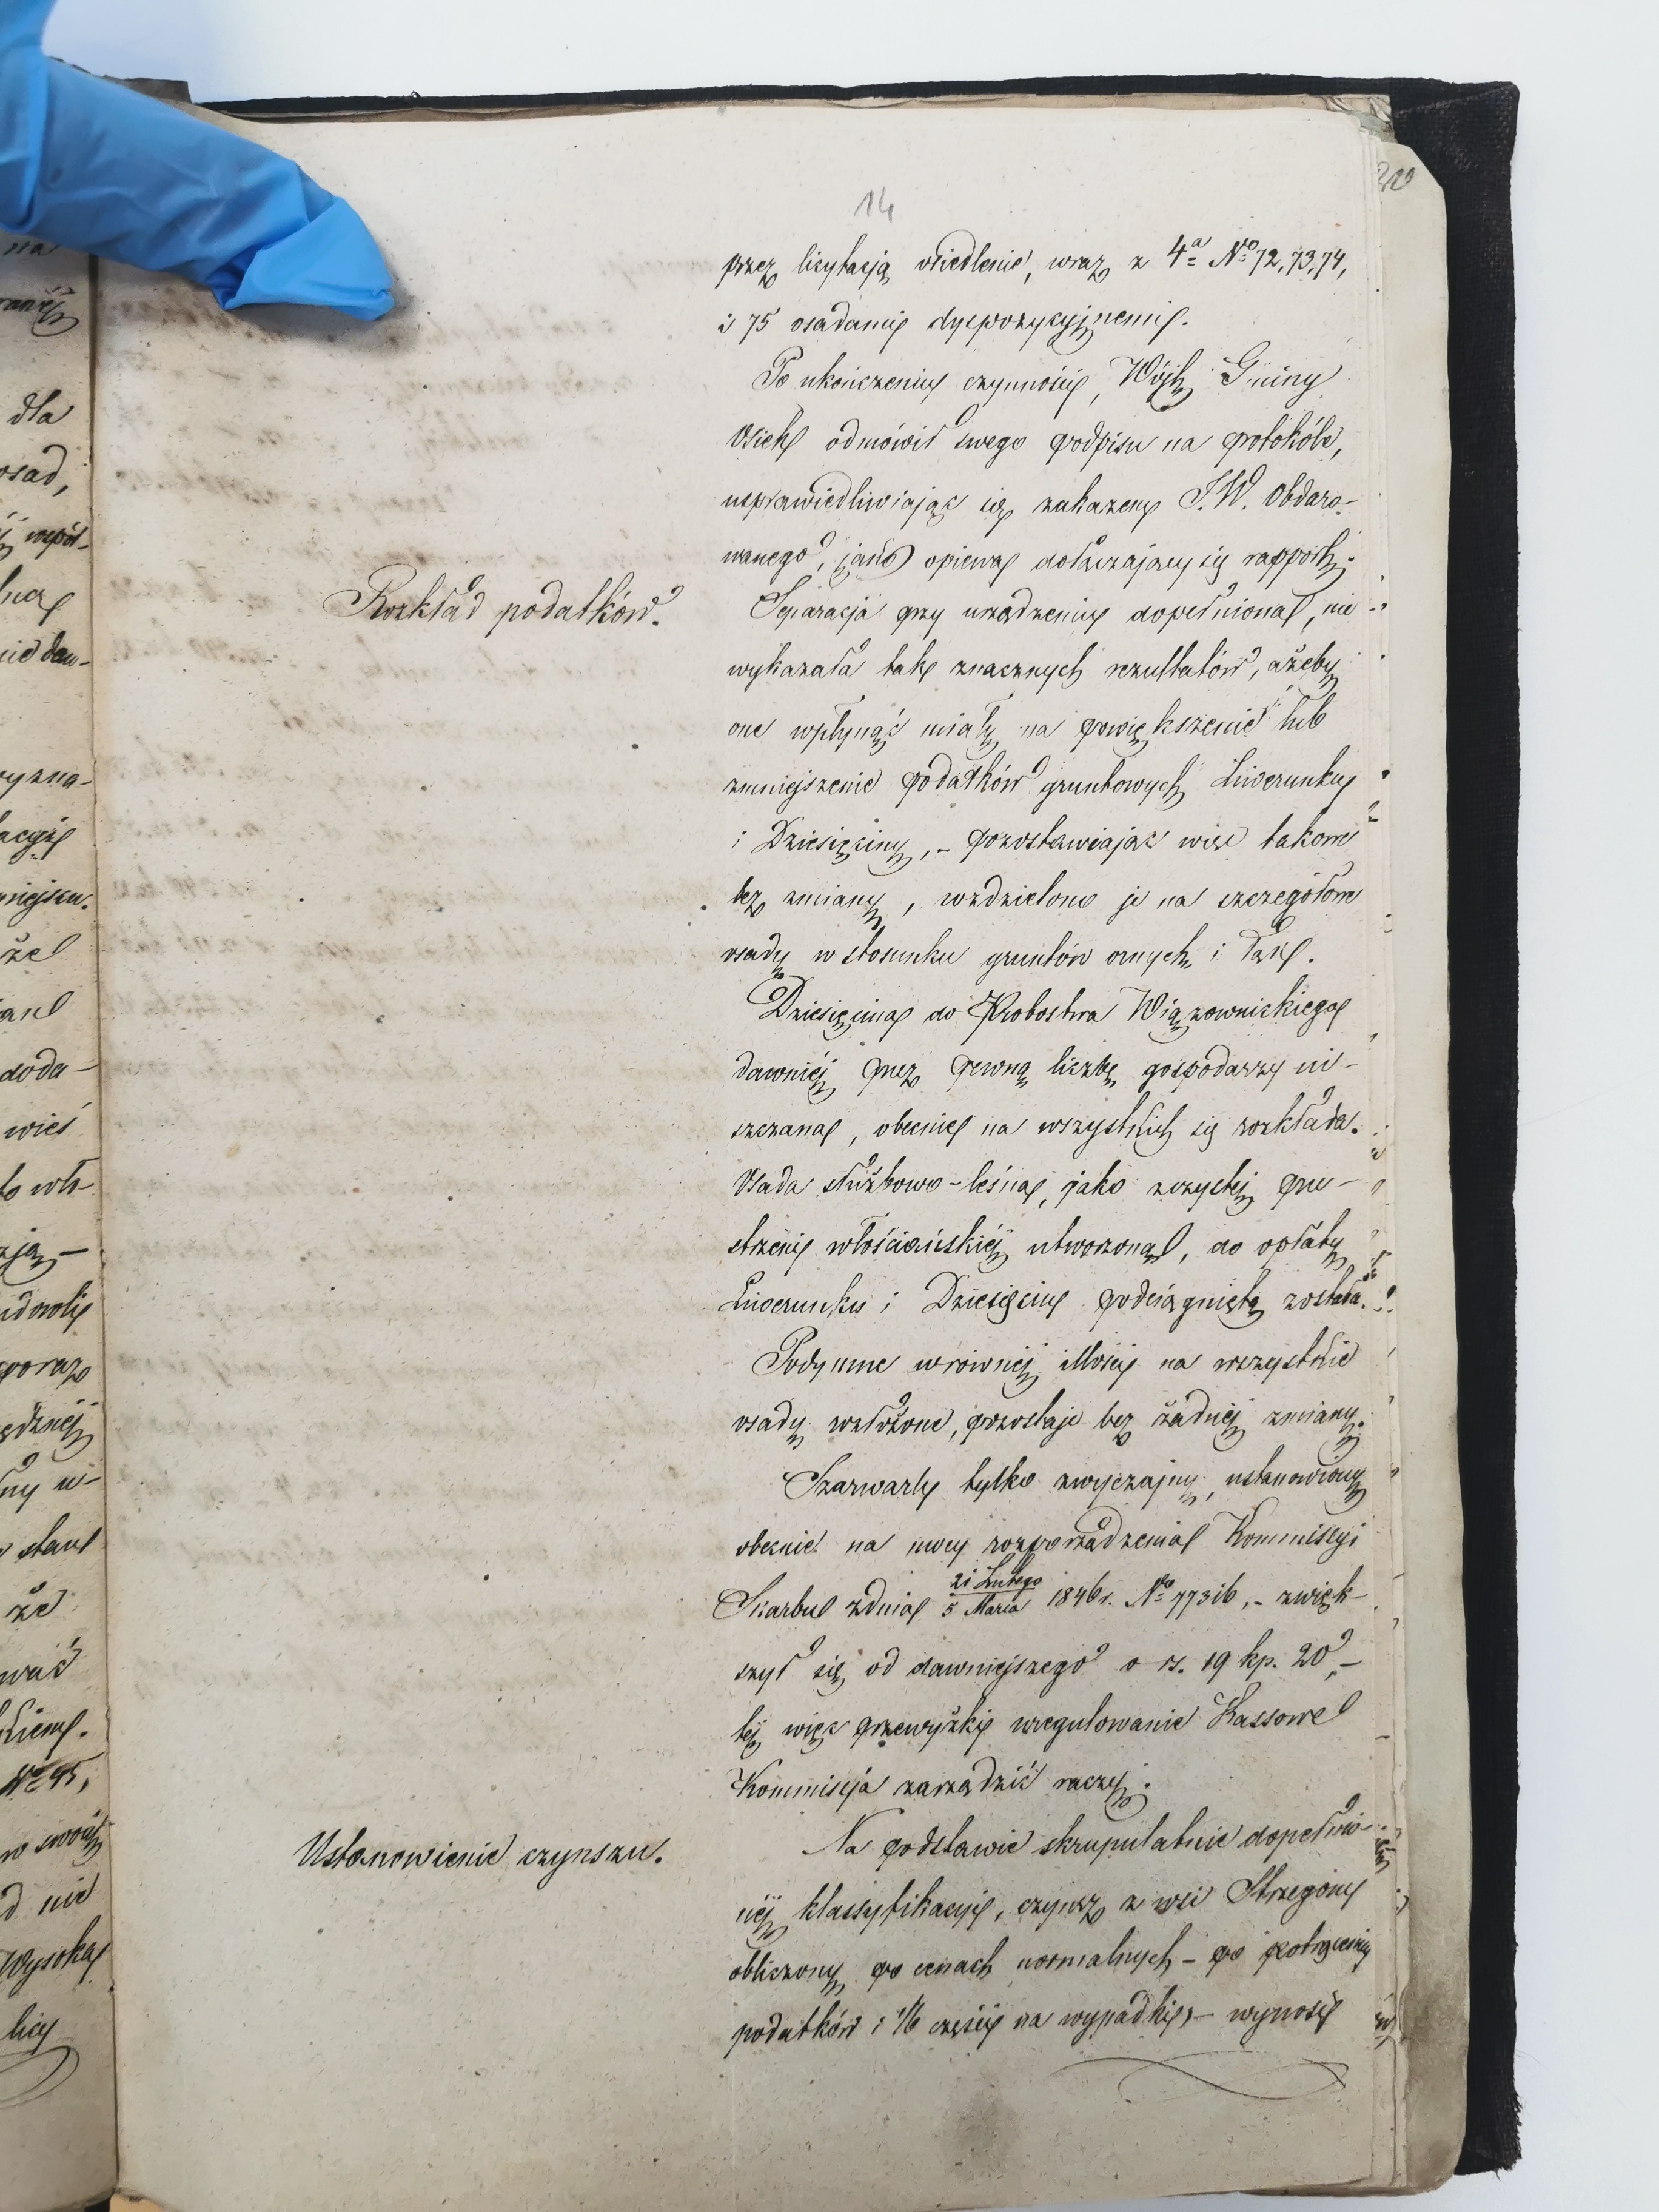 14
przez licytacją osiedlenie, wraz z 4ª Nº 72, 73, 74,
i 75 osadami dyspozycyjnemi.
Po ukończeniu czynności, Wójt Gminy
Osiek odmówił swego podpisu na protokóle,
usprawiedliwiając się zakazem J.W. Obdaro-
wanego, jak opiewa dołączający się rapport.
Rozkład podatków.
Separacja przy urządzeniu dopełniona, nie
wykazała tak znacznych rezultatów, ażeby
one wpłynąć miały na powiększenie lub
zmniejszenie podatków gruntowych Liwerunku
i Dziesięciny, - pozostawiając więc takowe
bez zmiany, rozdzielono je na szczegółowe
osady w stosunku gruntów ornych i łąk.
Dziesięcina do Probostwa Wiązownickiego
dawniéj przez pewną liczbę gospodarzy ui-
szczana, obecnie na wszystkich się rozkłada.
Osada służbowo-leśna, jako z czystéj prze-
strzeni włościańskiéj utworzona, do opłaty
Liwerunku i Dziesięciny podciągniętą została.
Podymne w równéj illości na wszystkie
osady rozłożone, pozostaje bez żadnéj zmiany.
Szarwark tylko zwyczajny, ustanowiony
obecnie na mocy rozporządzenia Kommissyi
Skarbu z dnia 21 Lutego / 5 Marca 1846 r. Nº 77316, - zwięk-
szył się od dawniejszego o rs. 19 kp. 20, -
téj więc przewyżki uregulowanie Kassowe
Kommissja zarządzić raczy.
Ustanowienie czynszu.
Na podstawie skrupulatnie dopełnio-
néj klassyfikacyi, czynsz z wsi Strzegomy
obliczony po cenach normalnych - po potrąceniu
podatków i 1/6 części na wypadki, - wynosi